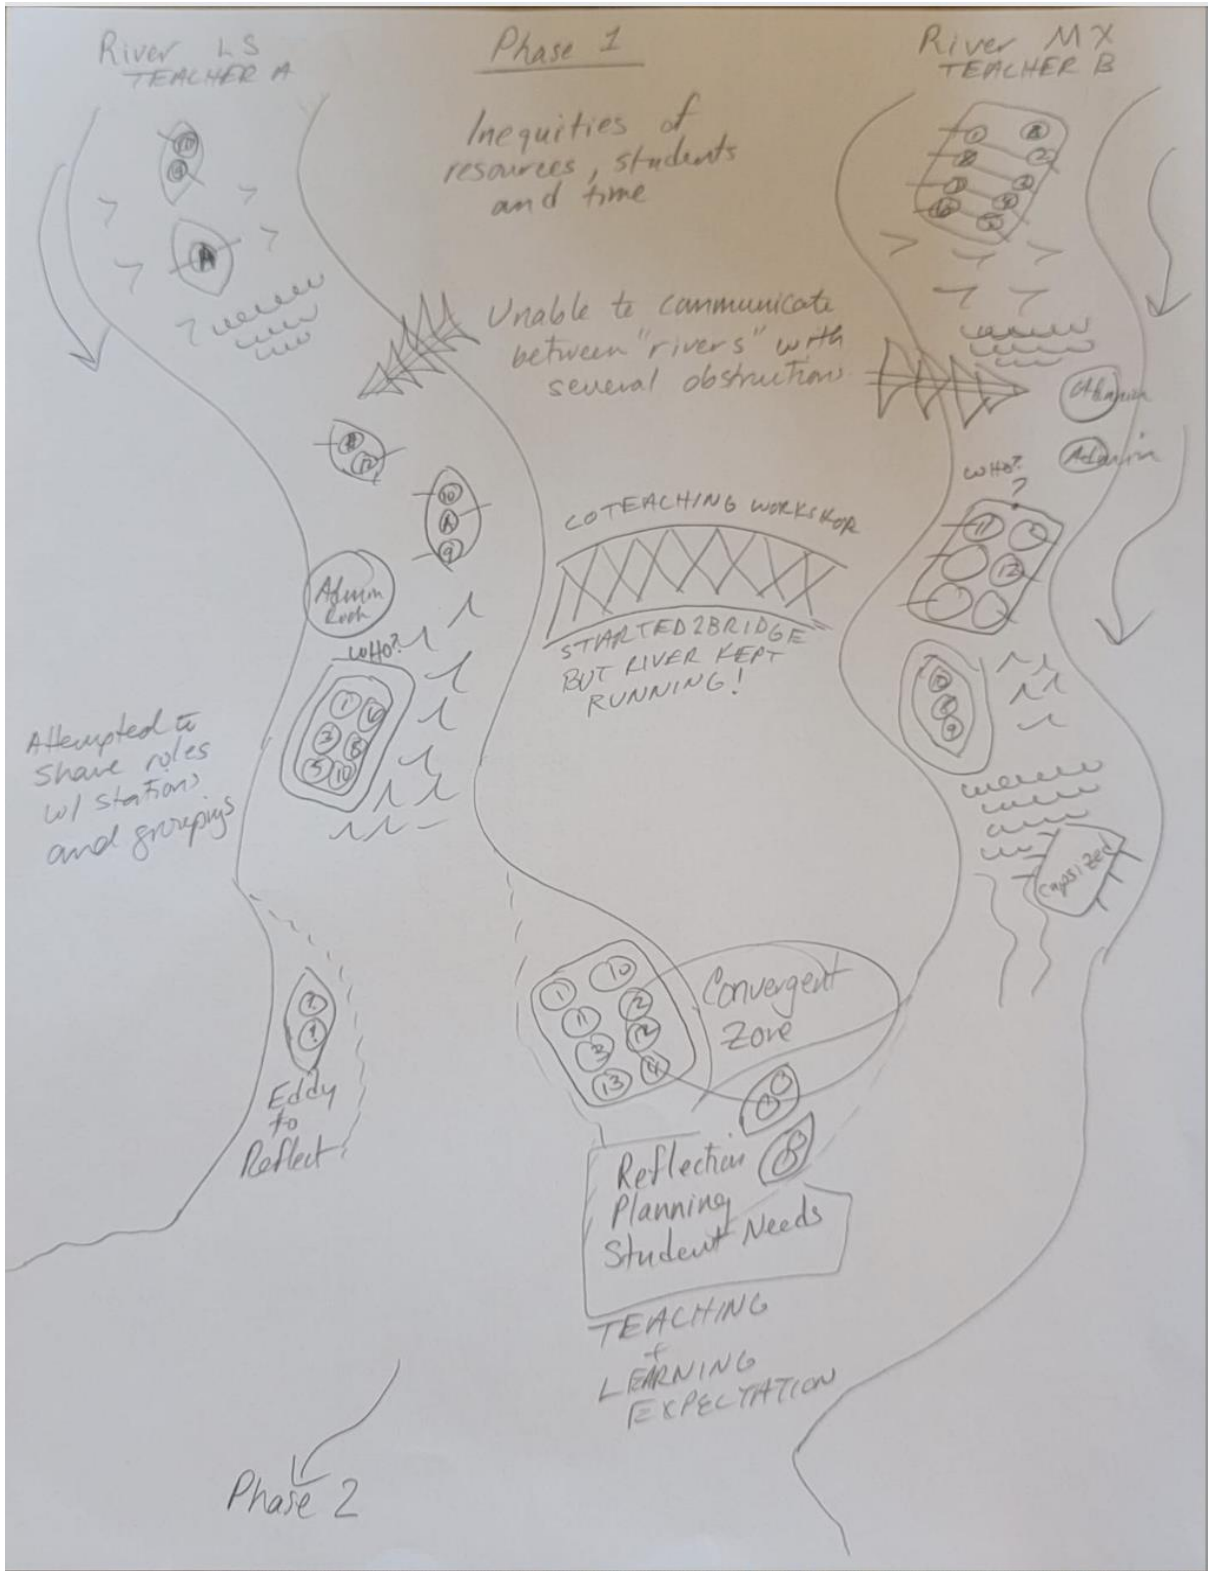 River LS
TEACHER A
Phase 1
River MX
TEACHER B
Inequities of
resources, students
and time
A
Unable to communicate
between "rivers" with
several obstructions
Admin
WHO?
?
COTEACHING WORKSHOP
STARTED 2 BRIDGE
BUT RIVER KEPT
RUNNING!
Admin
Rock
WHO?
Attempted to
share roles
w/ stations
and groupings
Capsized
Convergent
Zone
Eddy
to
Reflect
Reflection
Planning
Student Needs
TEACHING
+
LEARNING
EXPECTATION
Phase 2